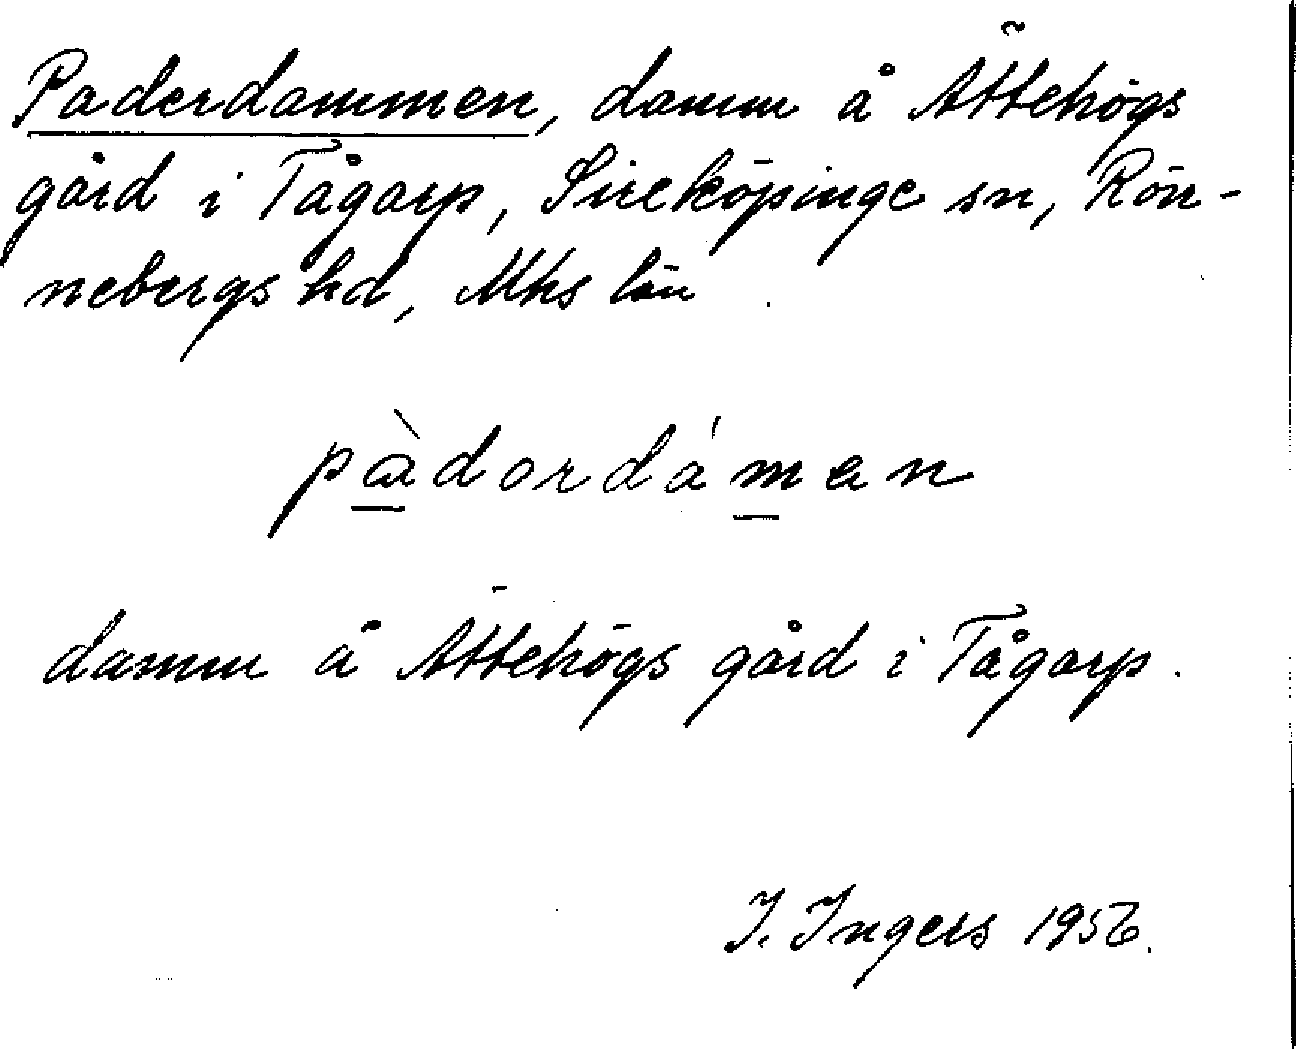 Paderdammen, damm å Ättehögs
gård i Tågarp, Sireköpinge sn, Rön-
nebergs hd, Mhs län.
pàdordámen
damm å Ättehögs gård i Tågarp.
I. Ingers 1956.